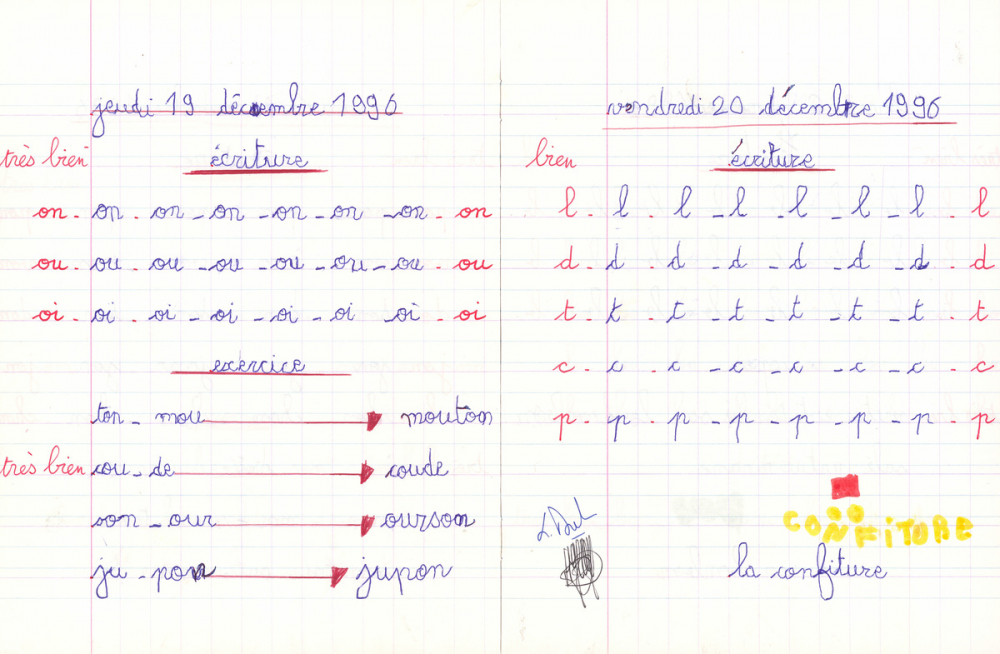 jeudi 19 décembre 1996
très bien écriture
on - on - on - on - on - on - on - on
ou - ou - ou - ou - ou - ou - ou - ou
oi - oi - oi - oi - oi - oi oi - oi
exercice
ton - mou mouton
très bien cou - de coude
son - our ourson
ju - pon jupon
vendredi 20 décembre 1996
bien écriture
l - l - l - l - l - l - l - l
d - d - d - d - d - d - d - d
t - t - t - t - t - t - t - t
c - c - c - c - c - c - c - c
p - p - p - p - p - p - p - p
CONFITURE
la confiture